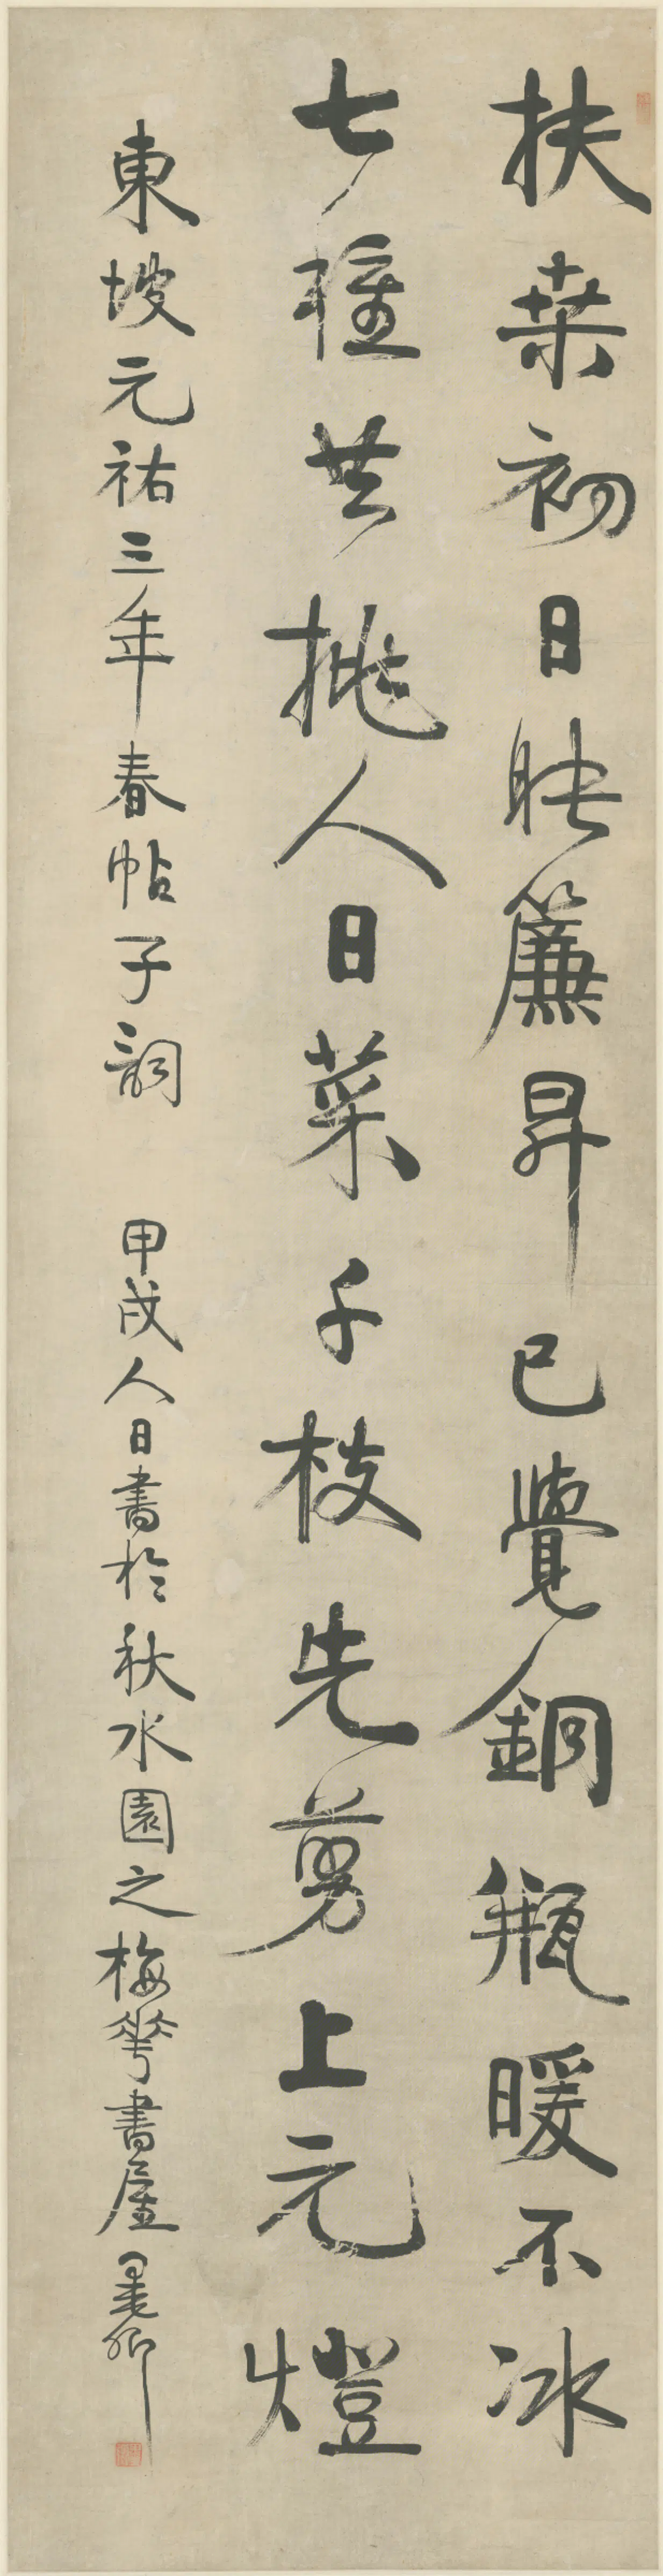 扶桒初日映簾昇已覺銅瓶暖不冰
七種共挑人日菜千枝先剪上元燈
東坡元祐三年春帖子詞 甲戌人日書於秋水園之梅華書屋 墨卿